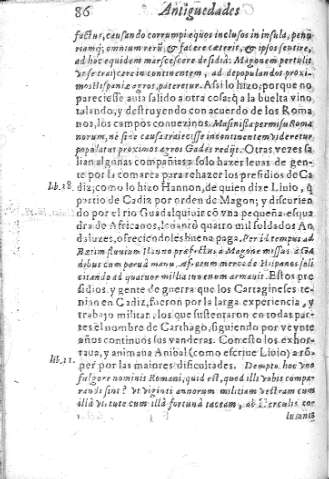 86 Antiguedades
factus, causando corrumpi equos inclusos in insula, penuriamq;
omnium rerũ, & facere cæteris, & ipsos sentire,
ad hoc equidem marcescere desidia: Magonem pertulit
ut se traijcere in continentem, ad depopulandos proximos
Hispaniæ agros, pateretur. Assi lo hizo, porque no
pareciesse auia salido a otra cosa, q̃ a la buelta vino
talando, y destruyendo con acuerdo de los Romanos,
los campos conuezinos. Masinissa permissu Romanorum,
ne sine causa traiecisse in continentem videretur,
populatur proximos agros Gades redijt. Otras vezes salian
algunas compañias solo hazer leuas de gente
por la comarca para rehazer los presidios de
lib. 28. Cadiz; como lo hizo Hannon, de quien dize Liuio, q̃
partio de Cadiz por orden de Magon; y discurriendo
por el rio Guadalquiuir cõ vna pequeña esquadra
de Africanos, leuantò quatro mil soldados Andaluzes,
ofreciendoles buena paga. Per id tempus ad
Bætim fluuium Hanno præfectus à Magone missus à Gadibus
cum parua manu, Africanorum mercede Hispanos sollicitando
ad quatuor millia iuuenum armauit. Estos presidios,
y gente de guerra que los Cartagineses tenian
en Cadiz, fueron por la larga experiencia, y
trabajo militar, los que sustentaron en todas partes
el nombre de Carthago, siguiendo por veynte
años continuos sus vanderas. Con esto los exhortaua,
y animaua Anibal (como escriue Liuio) a romper
lib. 21. por las maiores dificultades. Dempto hoc vno
fulgore nominis Romani, quid est, quod illi vobis comparandi
sint? vt viginti annorum militiam vestram cum
illa virtute cum illa fortuna taceam, ab Herculis
lumnis